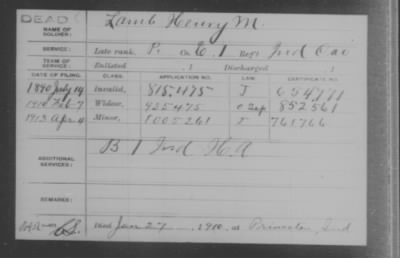 DEAD
NAME OF SOLDIER: Lamb Henry M.
SERVICE: Late rank, P. Co. E. 1 Reg't Ind Cav
TERM OF SERVICE: Enlisted , 1 Discharged , 1
DATE OF FILING. CLASS. APPLICATION NO. LAW. CERTIFICATE NO.
1890 July 14 Invalid, 815475 J 654771
1910 Feb 7 Widow, 935475 852561
1913 Apr Minor, 1005261 761766
ADDITIONAL SERVICES: B 1 Ind H.A
REMARKS:
Died Jan 27, 1910, at Princeton, Ind